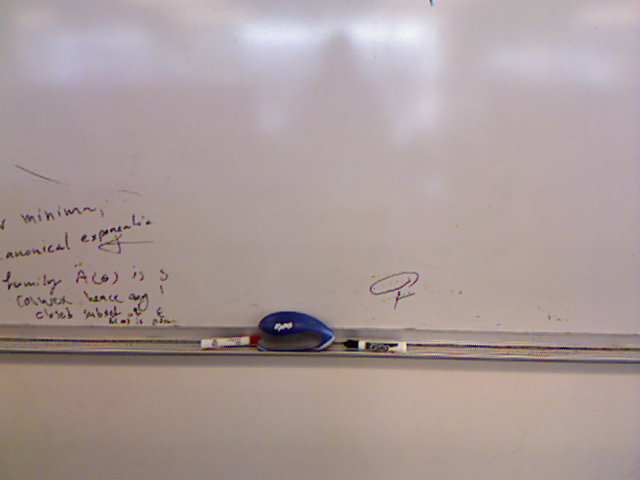 minima,
canonical exponential
family A(θ) is
convex, hence any
closed subset of
EXPO